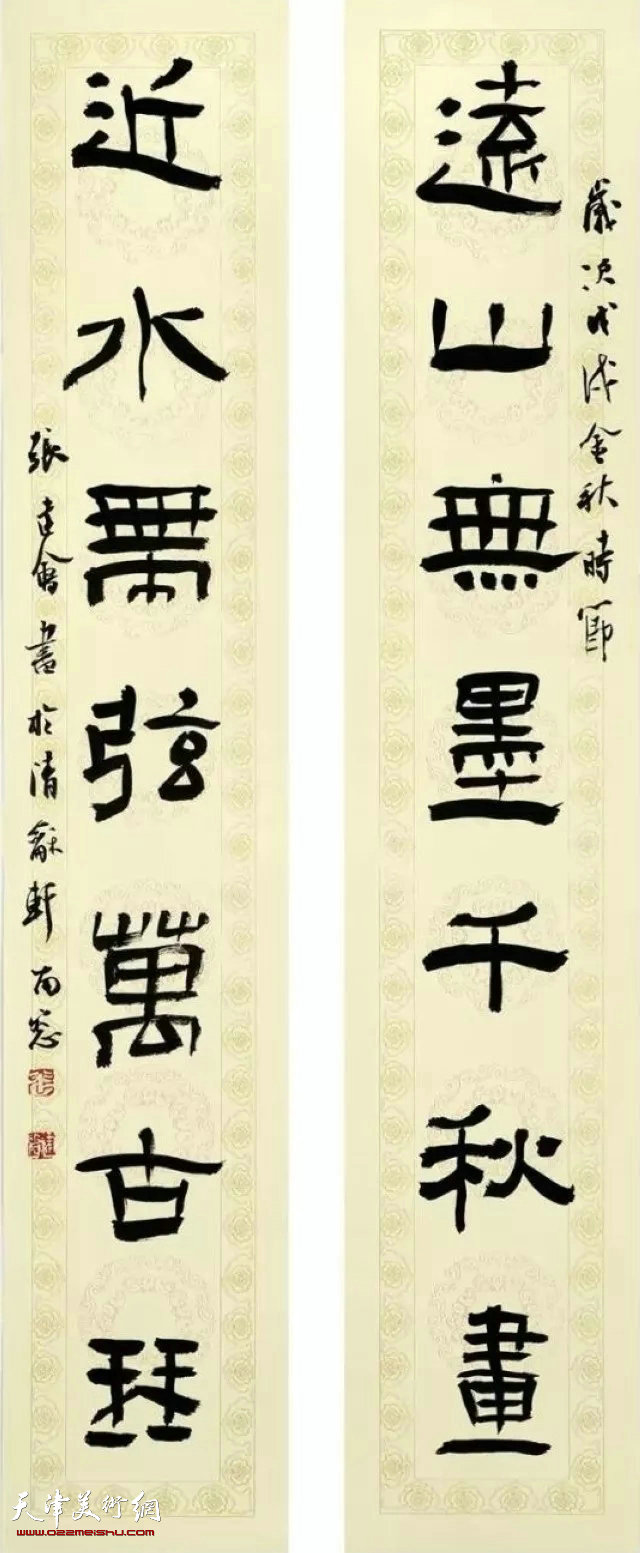 歲次戊戌金秋時節
遠山無墨千秋畫
近水無弦萬古琴
張建會書於清龢軒南窗
天津美術網
www.022meishu.com